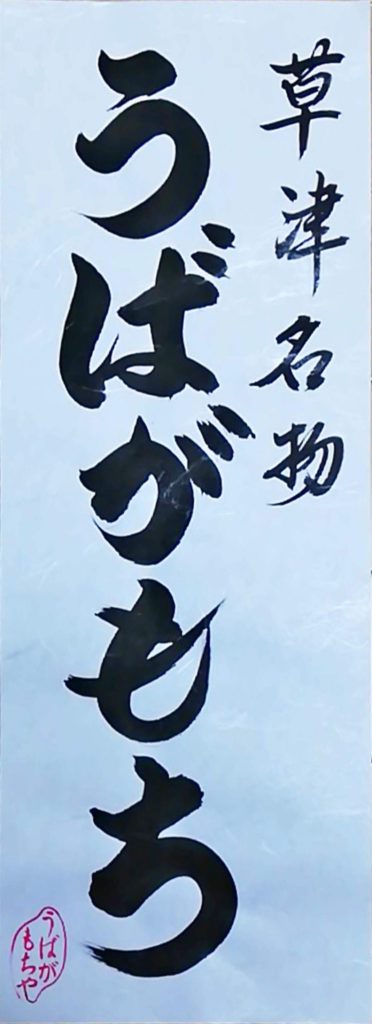 草津名物
うばがもち
うばが
もちや